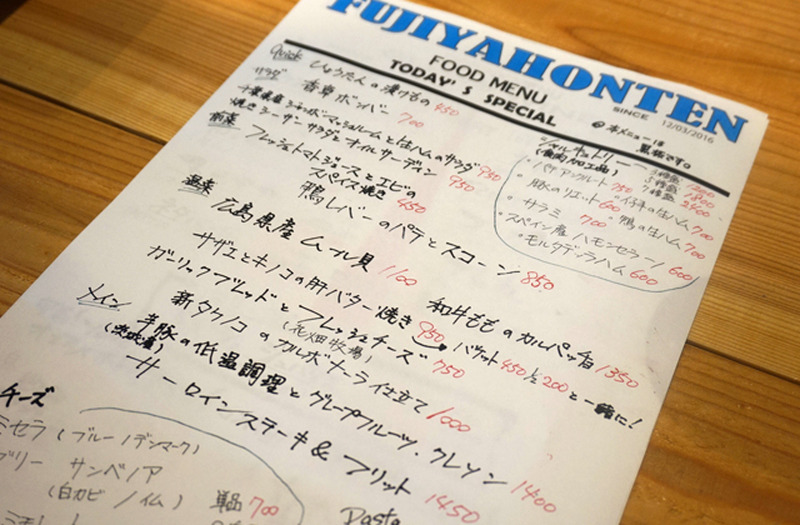 FUJIYAHONTEN
FOOD MENU
TODAY'S SPECIAL
SINCE 12/03/2016
@本メニューは
黒板です。
Quick ひょうたんの漬けもの 450
サラダ 香草ボンバー 700
千葉県産ジャンボマッシュルームと生ハムのサラダ 950
焼きシーザーサラダとオイルサーディン 950
前菜 フレッシュトマトジュースとエビの
スパイス焼き 450
鴨レバーのパテとスコーン 850
温菜 広島県産ムール貝 1100
和牛もものカルパッチョ 1350
サザエとキノコの肝バター焼き 950 バゲット 450 1/2 200 と一緒に!
ガーリックブレッドとフレッシュチーズ 750
(花畑牧場)
メイン 新タケノコのカルボナーラ仕立て 1000
豚の低温調理とグレープフルーツ、クレソン 1400
サーロインステーキ & フリット 1450
シャルキュトリー
(食肉加工品)
3種盛 1200
5種盛 1800
7種盛 2400
・パテアンクルート 750
・仔牛の生ハム 700
・豚のリエット 600
・鴨の生ハム 700
・サラミ 700
・スペイン産ハモンセラーノ 600
・モルタデッラハム 600
チーズ
ミセラ (ブルー/デンマーク)
ブリー サンベノア
(白カビ/イム) 単品 700
Pasta